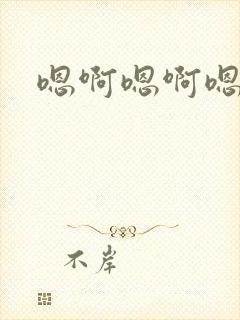 嗯啊嗯啊嗯
不岸